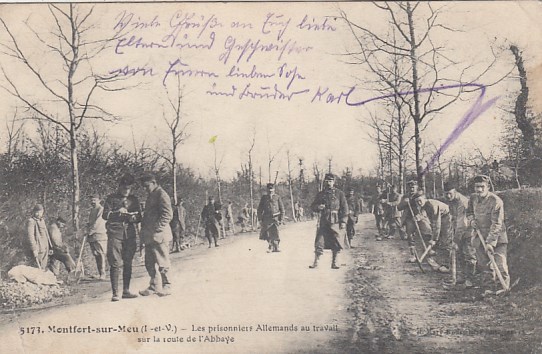 Viele Grüße an Euch liebe
Eltern und Geschwister
von Euern lieben Sohn
und Bruder Karl
5173. Montfort-sur-Meu (I-et-V.) — Les prisonniers Allemands au travail
sur la route de l'Abbaye